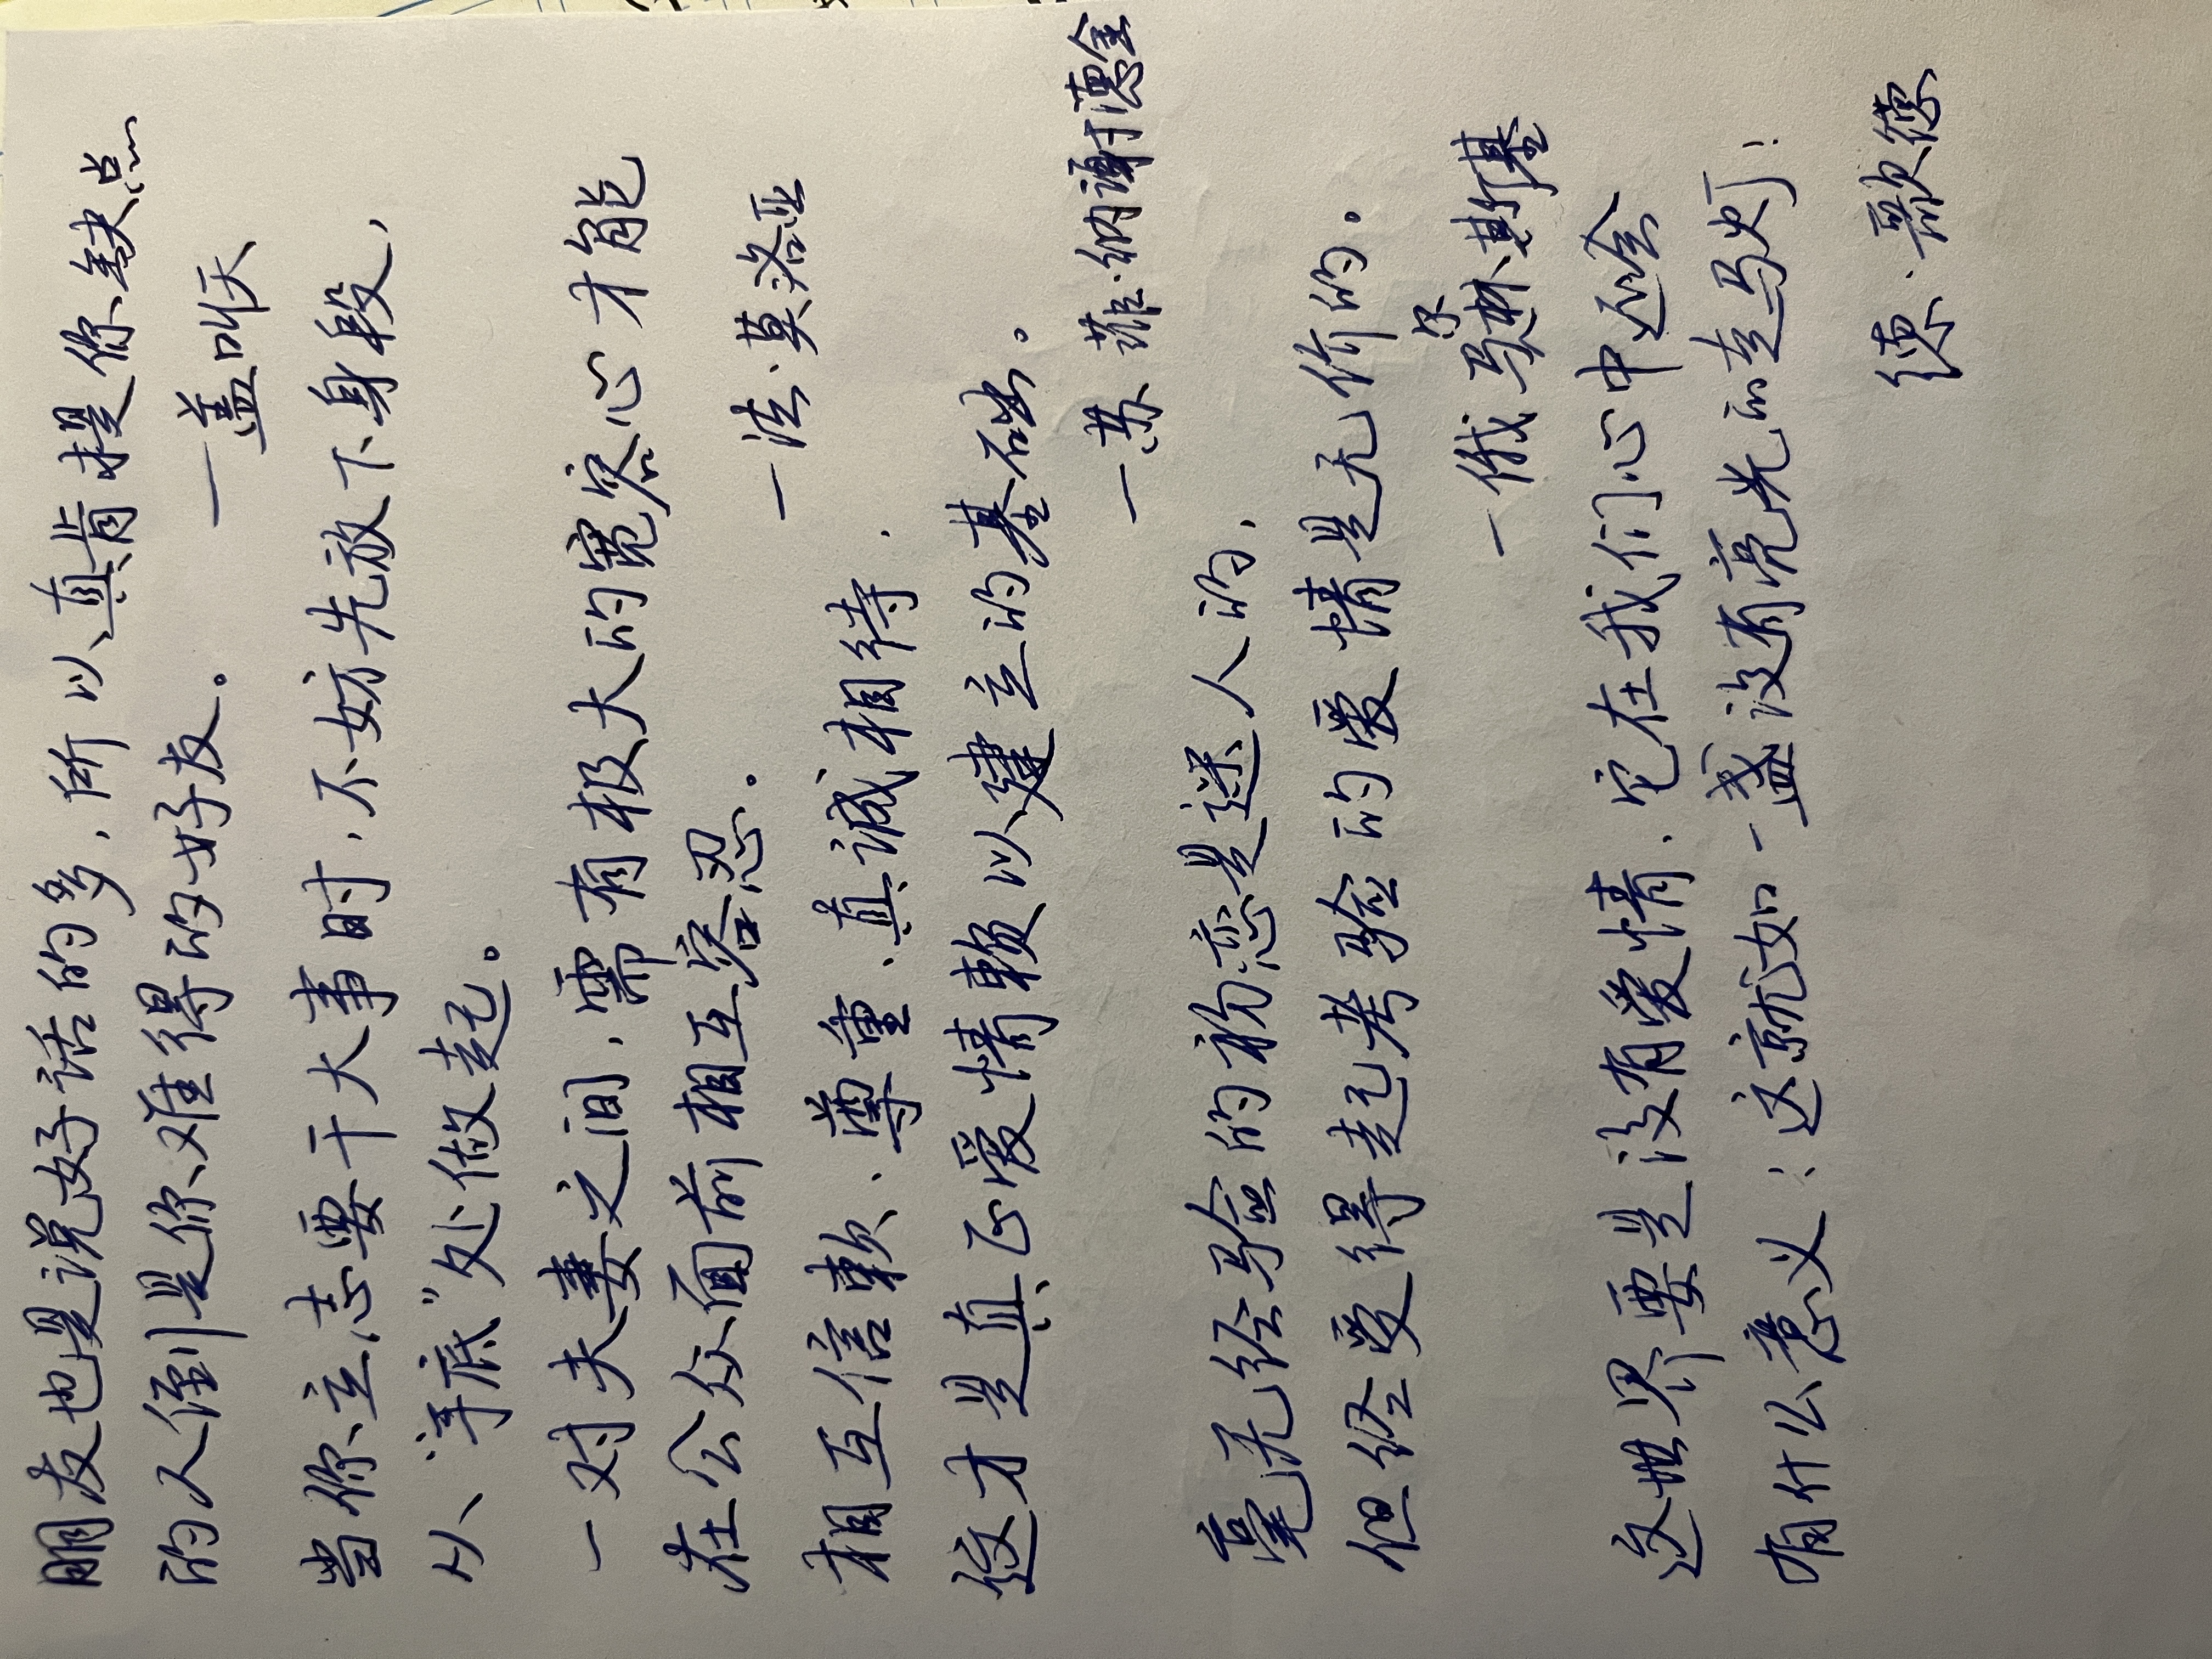 朋友也是说好话的多，所以真肯提你缺点
的人倒是你难得的好友。
—盖叫天
当你立志要干大事时，不妨先放下身段，
从“手底”处做起。
一对夫妻之间，需有极大的宽容心才能
在公众面前相互容忍。
—法·莫洛亚
相互信赖、尊重、真诚相待，
这才是真正爱情赖以建立的基础。
—苏 菲·纳谢德金
毫无经验的初恋是迷人的，
但经受得起考验的爱情是无价的。
—俄 马尔林斯基
这世界要是没有爱情，它在我们心中还会
有什么意义！这就如一盏没有亮光的走马灯！
德·歌德